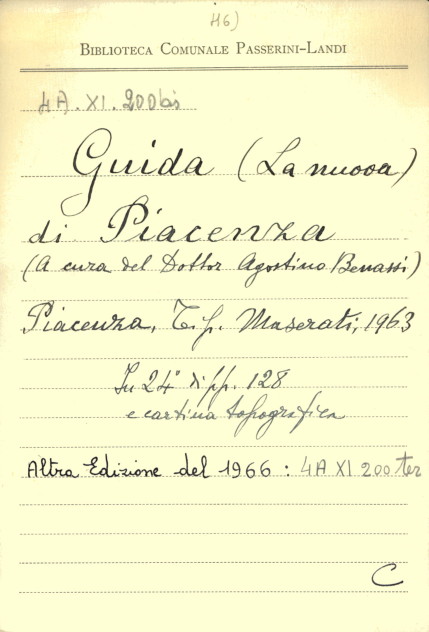 46)
BIBLIOTECA COMUNALE PASSERINI-LANDI
4A.XI.200bis
Guida (La nuova)
di Piacenza
(A cura del Dottor Agostino Benassi)
Piacenza, Tip. Maserati, 1963
In 24° di pp. 128
e cartina topografica
Altra Edizione del 1966: 4A XI 200 ter
C